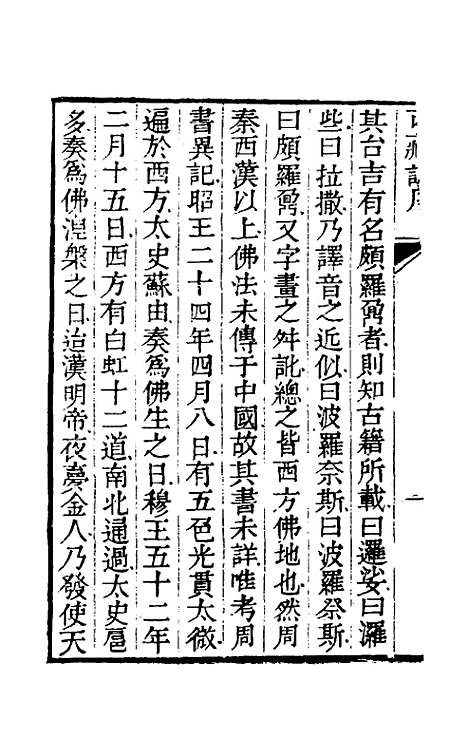 其台吉有名頗羅鼐者則知古籍所載曰邏娑曰邏
些曰拉撒乃譯音之近似曰波羅奈斯曰波羅奈斯
曰頗羅鼐又字畫之舛訛總之皆西方佛地也然周
秦西漢以上佛法未傳于中國故其書未詳唯考周
書異記昭王二十四年四月八日有五色光貫太微
遍於西方太史蘇由奏爲佛生之日穆王五十二年
二月十五日西方有白虹十二道南北通過太史扈
多奏爲佛涅槃之日迨漢明帝夜夢金人乃發使天